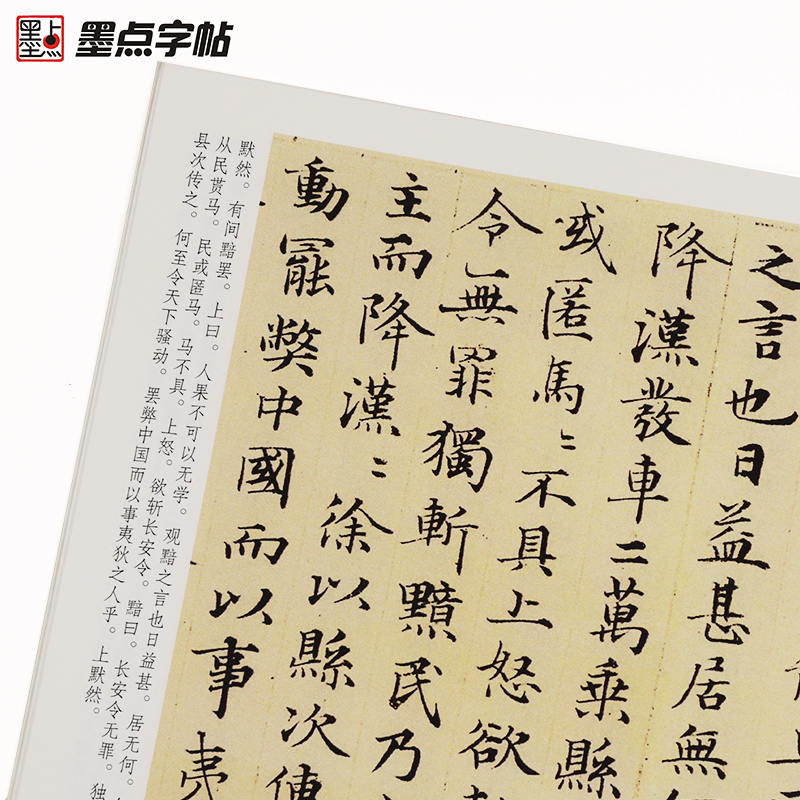 墨点字帖
之言也日益甚居無
降漢發車二萬乘縣
或匿馬〻不具上怒欲斬
令無罪獨斬黯民乃
主而降漢〻徐以縣次傳
動罷弊中國而以事夷
默然。有间黯罢。上曰。人果不可以无学。观黯之言也日益甚。居无何。
从民贳马。民或匿马。马不具。上怒。欲斩长安令。黯曰。长安令无罪。独
县次传之。何至令天下骚动。罢弊中国而以事夷狄之人乎。上默然。